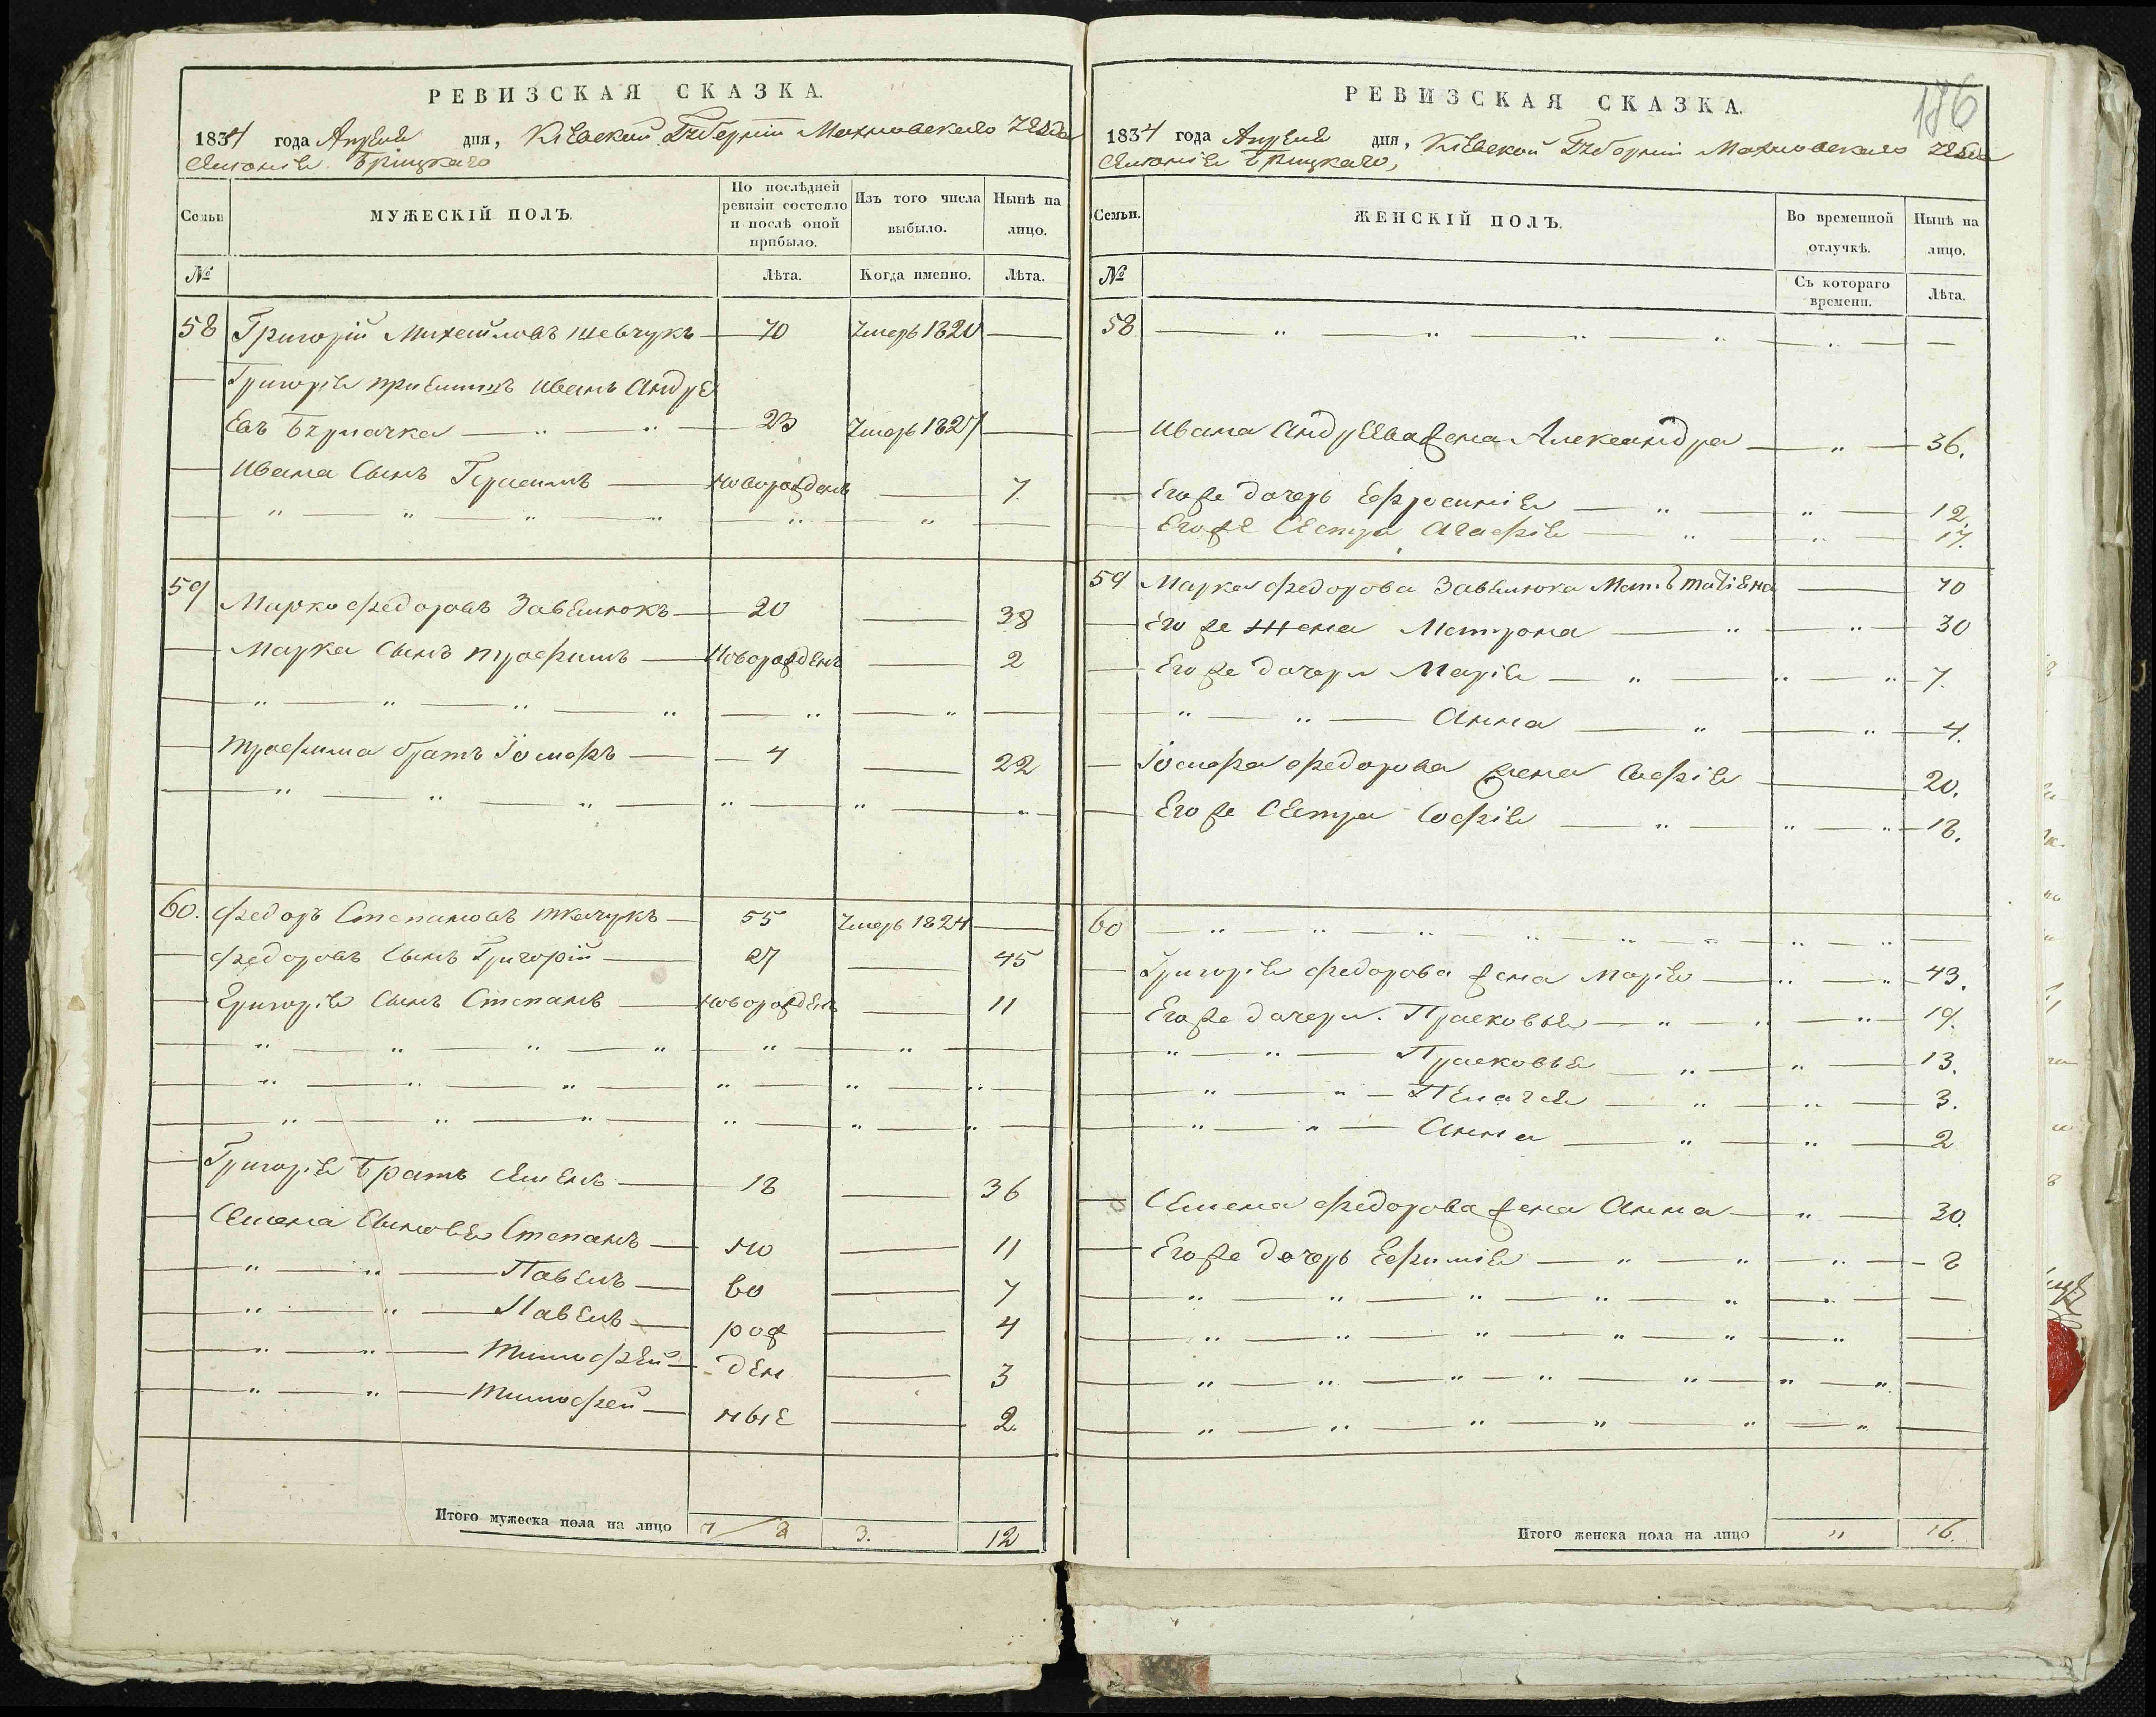 РЕВИЗСКАЯ СКАЗКА.
1834 года Апреля дня, Кіевской Губерніи Махновскаго Уезда
Семьи
МУЖЕСКІЙ ПОЛЪ.
По послѣдней ревизіи состояло и послѣ оной прибыло.
Изъ того числа выбыло.
Нынѣ на лицо.
№ Лѣта. Когда именно. Лѣта.
58 Григорій Михайловъ Шевчукъ — 70 Умеръ 1820 —
— Григорія приемышъ Иванъ Андре
евъ — " — " — 23 Умеръ 1827 —
— Ивана Сынъ Герасимъ — новорожденъ — 7.
— " — " — " — " — " — " —
59 Марко Федоровъ — 20 — 38
— Марка Сынъ Трофимъ — Новорожденъ — 2
— " — " — " — " — " — " —
— Трофима братъ Іосифъ — 4 — 22
— " — " — " — " — " — " —
60. Федоръ Степановъ Ткачукъ — 55 Умеръ 1824 —
— Федоровъ Сынъ Григорій — 27 — 45
— Григорія Сынъ Степанъ — новорожденъ — 11
— " — " — " — " — " — " —
— " — " — " — " — " — " —
— " — " — " — " — " — " —
— Григорія Братъ Семенъ — 18 — 36
— Семена Сыновья Степанъ — но — 11
— " — " — Павелъ — во — 7
— " — " — Павелъ — рож — 4
— " — " — Тимофей — ден — 3
— " — " — Тимофей — ные — 2.
Итого мужеска пола на лицо 7/8 3. 12
РЕВИЗСКАЯ СКАЗКА.
186
1834 года Апреля дня, Кіевской Губерніи Махновскаго Уезда
Семьи.
ЖЕНСКІЙ ПОЛЪ.
Во временной отлучкѣ.
Нынѣ на лицо.
№ Съ котораго времени. Лѣта.
58 — " — " — " — " — " — —
— Ивана Андреева жена Александра — " — 36.
— Его же дочерь Ефросинія — " — " — 12.
Его же Сестра Агафія — " — " — 17.
59 Марка Федорова Мать Татіена — 70
— Его же Жена Матрона — " — " — 30
— Его же дочери Марія — " — " — " — 7.
— " — " — Анна — " — " — 4.
— Іосифа Федорова жена Софія — 20.
— Его же Сестра Софія — " — " — " — 18.
60 — " — " — " — " — " — " — " — " —
— Григорія Федорова жена Марія — " — " — 43.
— Его же дочери. Прасковья — " — " — " — 19.
— " — " — Прасковья — " — " — 13.
— " — " — Пелагея — " — " — 3.
— " — " — Анна — " — " — 2
— Семена Федорова жена Анна — " — 30.
— Его же дочерь Ефимія — " — " — " — 8
" — " — " — " — " — " — —
" — " — " — " — " — " — —
" — " — " — " — " — " — " — —
" — " — " — " — " — " — —
Итого женска пола на лицо " 16.